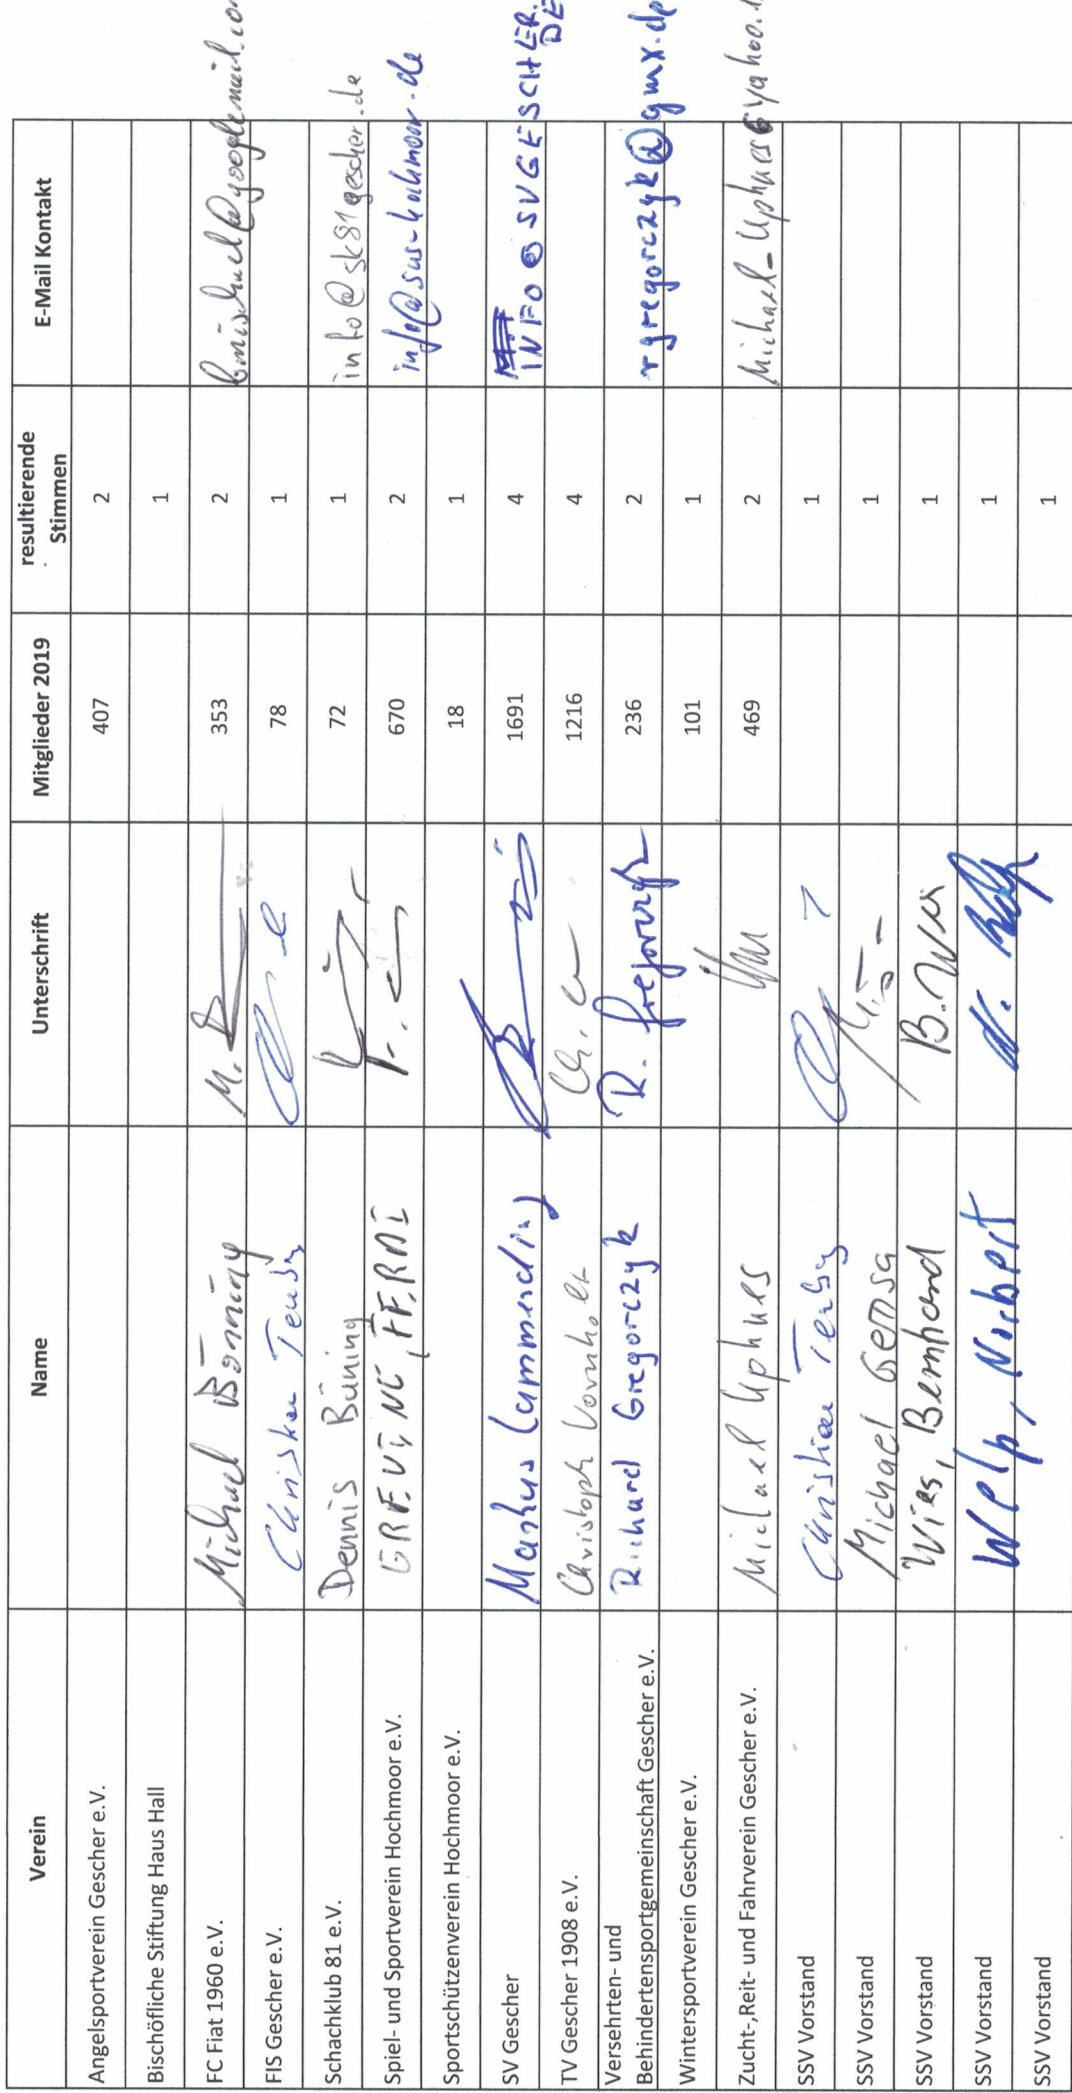 Verein Name Unterschrift Mitglieder 2019 resultierende Stimmen E-Mail Kontakt
Angelsportverein Gescher e.V. 407 2
Bischöfliche Stiftung Haus Hall 1
FC Fiat 1960 e.V. Michael Bönning M. 353 2
FIS Gescher e.V. Christian 78 1
Schachklub 81 e.V. Dennis Büning 72 1 info@sk81gescher.de
Spiel- und Sportverein Hochmoor e.V. 670 2 info@sus-hochmoor.de
Sportschützenverein Hochmoor e.V. 18 1
SV Gescher Markus Lammerding 1691 4 INFO@SVGESCHER.DE
TV Gescher 1908 e.V. Christoph Vornholt 1216 4
Versehrten- und
Behindertensportgemeinschaft Gescher e.V. Richard Gregorczyk R. Gregorczyk 236 2 rgregorczyk@gmx.de
Wintersportverein Gescher e.V. 101 1
Zucht-,Reit- und Fahrverein Gescher e.V. Michael Uphues 469 2
SSV Vorstand Christian 1
SSV Vorstand Michael 1
SSV Vorstand Wies, Bernhard 1
SSV Vorstand Welp, Norbert 1
SSV Vorstand 1